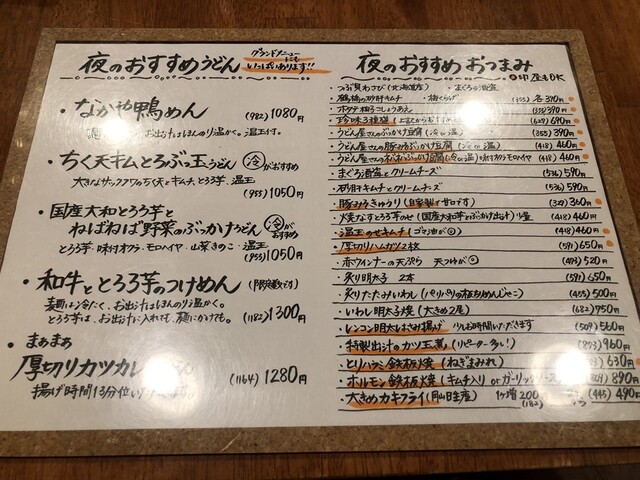 夜のおすすめうどん
グランドメニュー
にも
いっぱいあります!!
・なかや鴨めん (982) 1080円
お出汁はほんのり温かく。温玉付。
・ちく天キムとろぶっ玉うどん 冷がおすすめ
大きなサックフワのちく天とキムチ、とろろ、温玉
(955) 1050円
・国産大和とろろ芋と
ねばねば野菜のぶっかけうどん 冷がおすすめ
とろろ芋・味付オクラ・モロヘイヤ・山菜きのこ・温玉
(955) 1050円
・和牛ととろろ芋のつけめん
麺は冷たく、お出汁はほんのり温かく。
とろろ芋は、お出汁に入れても、麺にかけても。 (1182) 1300円
・まぁまぁ
厚切りカツカレ (1164) 1280円
揚げ時間13分位い
夜のおすすめ おつまみ
・つぶ貝わさび(北海道産) ・まぐろ酒盗
・鶴橋の砂肝キムチ ・梅くらげ (355) 各390円
・ホタテ柚子こしょうあえ 390円
・珍味3種盛 690円
・うどん屋さんのぶっかけ豆腐(冷or温) (355) 390円
・うどん屋さんの豚みぶっかけ豆腐(冷or温) (418) 460円
・うどん屋さんのねばねばぶっかけ豆腐(冷or温) 味付オクラモロヘイヤ (418) 460円
・まぐろ酒盗とクリームチーズ (536) 590円
・砂肝キムチとクリームチーズ (536) 590円
・豚みそきゅうり(自家製で甘口です) 360円
・焼なすとろろ芋のせ(国産大和芋のぶっかけ出汁) (418) 460円
・温玉のせキムチ(ゴマ油が◎) (418) 460円
・厚切りハムカツ2枚 (591) 650円
・赤ウインナーの天ぷら 天つゆが◎ 520円
・炙り明太子 2本 (591) 650円
・炙りたたみいわし (455) 500円
・いわし明太子焼(大きめ2尾) (682) 750円
・レンコン明太はさみ揚げ 少しお時間いただきます (509) 560円
・特製出汁のカツ玉煮(リピーター多し!) (873) 960円
・とりハラミ鉄板焼(ねぎまみれ) 630円
・ホルモン鉄板焼(キムチ入りorガーリック 890円
・大きめカキフライ(岡山日生産) 200 (182) (445) 490円